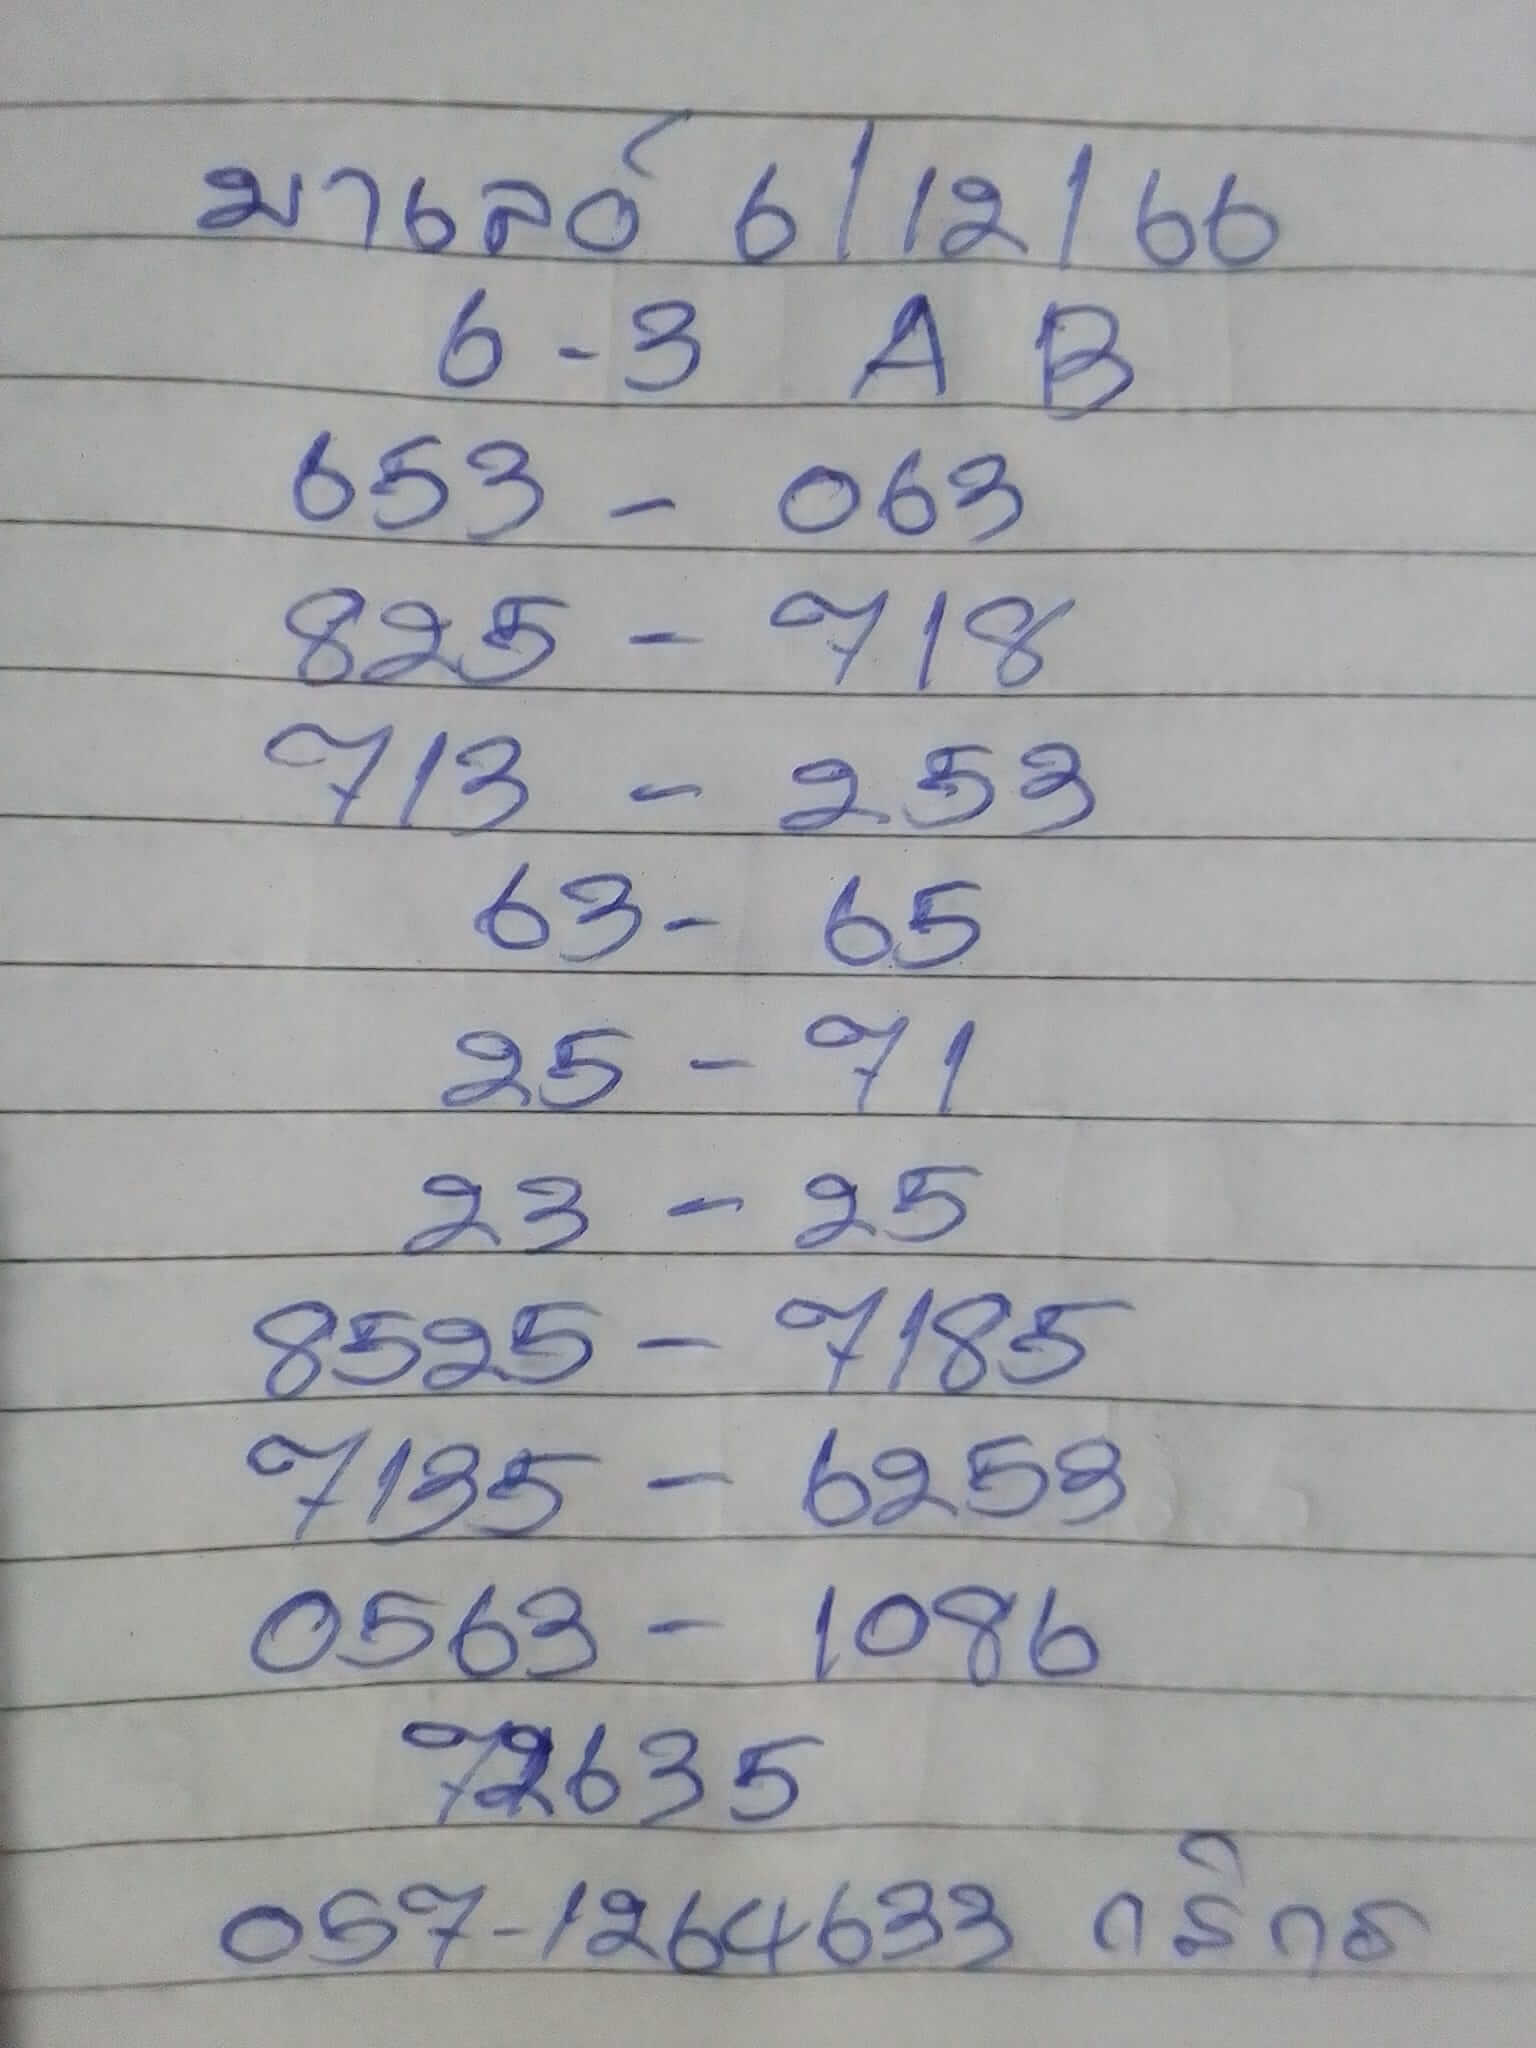 มาเลย์ 6/12/66
6-3 A B
653 - 063
825 - 718
713 - 253
63 - 65
25 - 71
23 - 25
8525 - 7185
7135 - 6253
0563 - 1086
72635
057-1264633